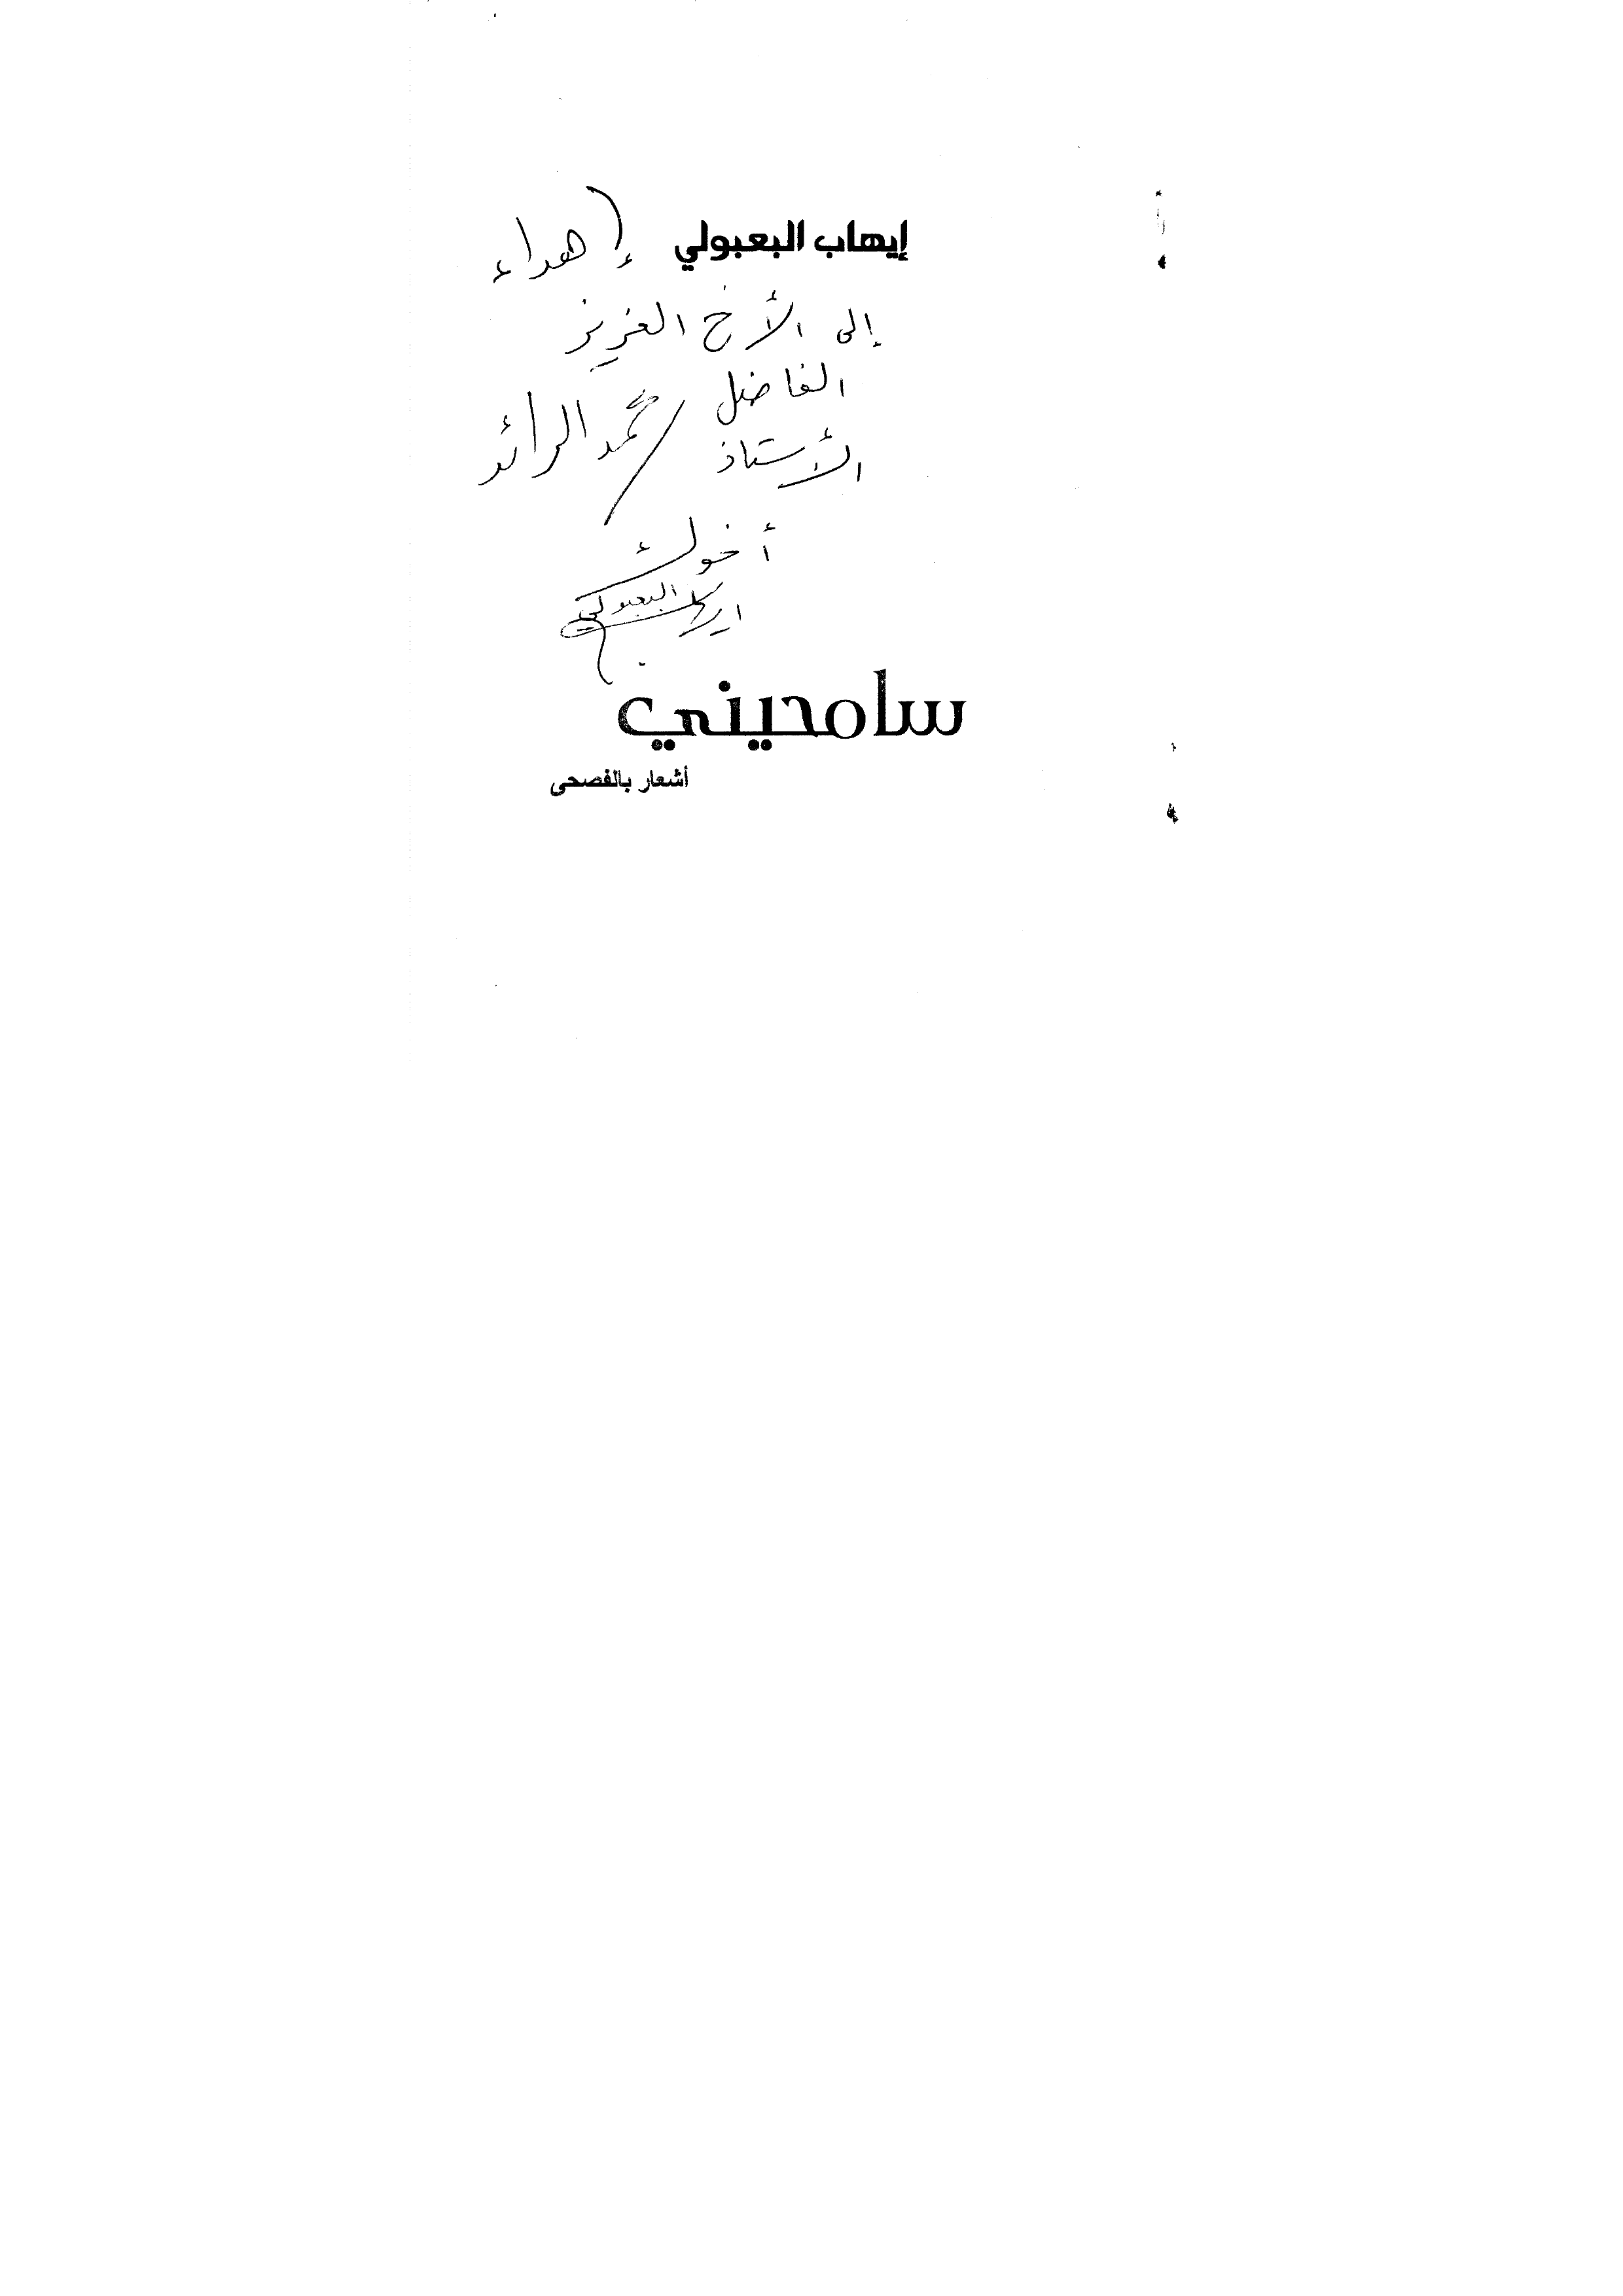 إيهاب البعبولي
إهداء
إلى الأخ العزيز
الفاضل
الأستاذ / محمد الرائد
أخوك
ايهاب البعبولي
سامحيني
أشعار بالفصحى